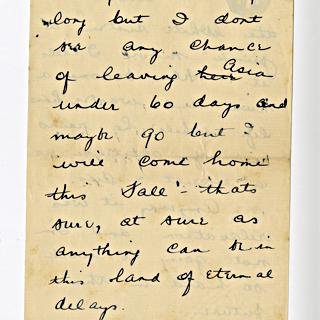 long but I dont
see any chance
of leaving here Asia
under 60 days and
maybe 90 but I
will come home
this Fall - thats
sure, at sure as
anything can be in
this land of Eternal
delays.